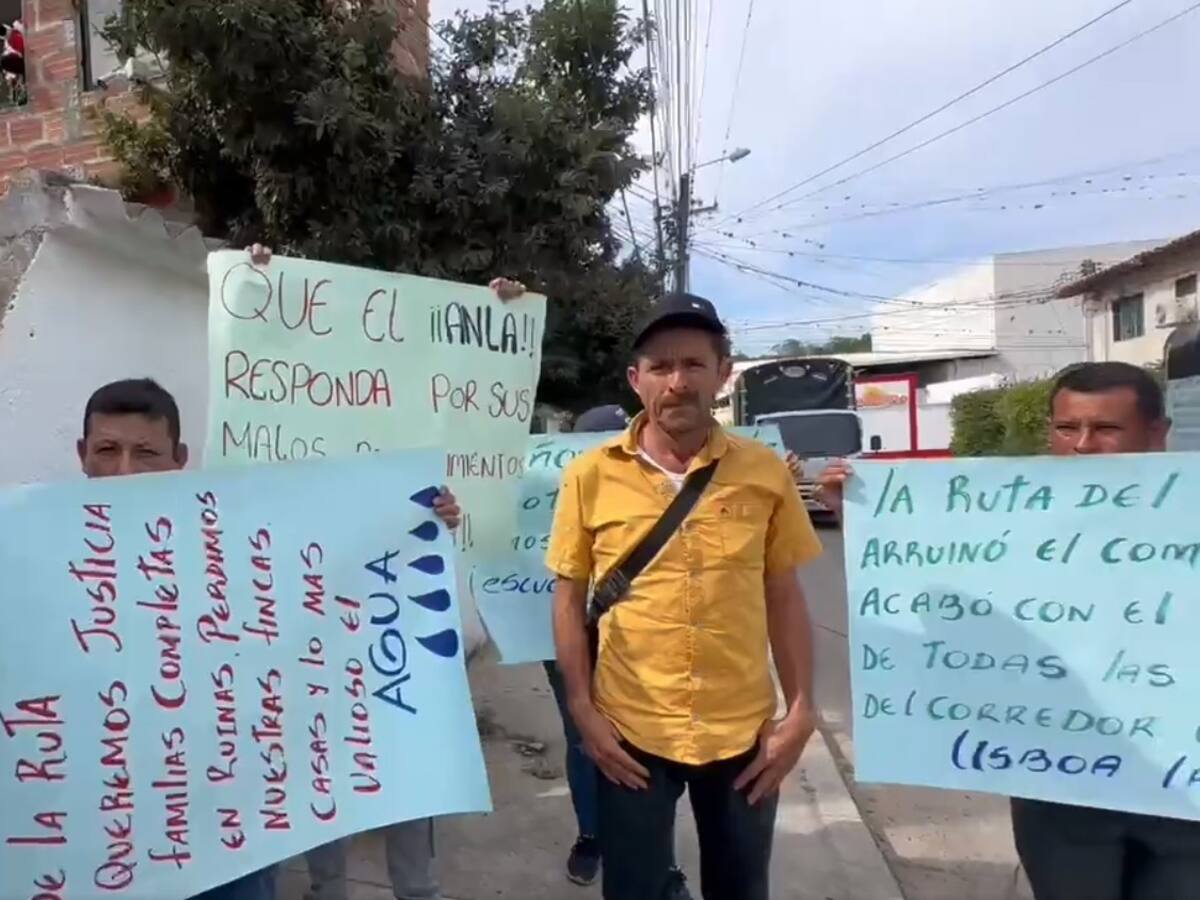 QUE EL ¡¡ANLA!!
RESPONDA POR SUS
MALOS
IMIENTOS
!!
DE LA RUTA
QUEREMOS JUSTICIA
FAMILIAS COMPLETAS
EN RUINAS. PERDIMOS
NUESTRAS FINCAS.
CASAS Y LO MAS
VALIOSO El
AGUA
¡ESCU
LA RUTA DEL
ARRUINÓ El COM
ACABÓ CON El
DE TODAS LAS
DEL CORREDOR
LISBOA